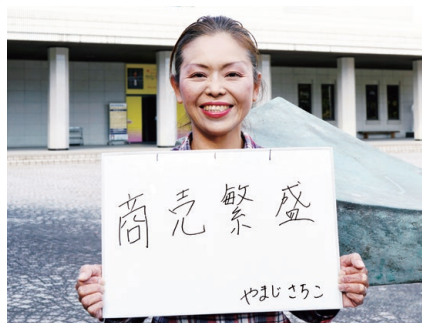 商売繁盛
やまじさちこ